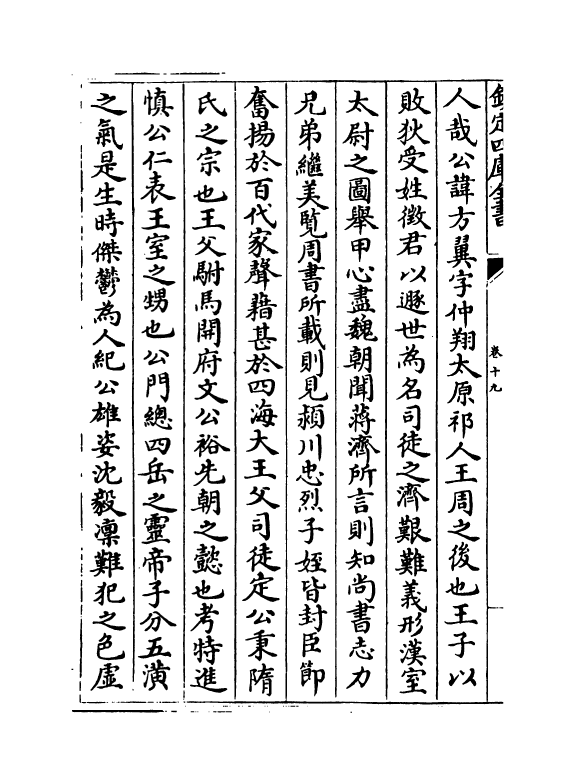 欽定四庫全書
卷十九
人哉公諱方翼字仲翔太原祁人王周之後也王子以
敗狄受姓徵君以遯世為名司徒之濟艱難義形漢室
太尉之圖舉甲心盡魏朝聞蔣濟所言則知尚書志力
兄弟繼美覽周書所載則見潁川忠烈子姪皆封臣節
奮揚於百代家聲藉甚於四海大王父司徒定公秉隋
氏之宗也王父駙馬開府文公裕先朝之懿也考特進
慎公仁表王室之甥也公門總四岳之靈帝子分五潢
之氣是生時傑鬱為人紀公雄姿沈毅凛難犯之色虛